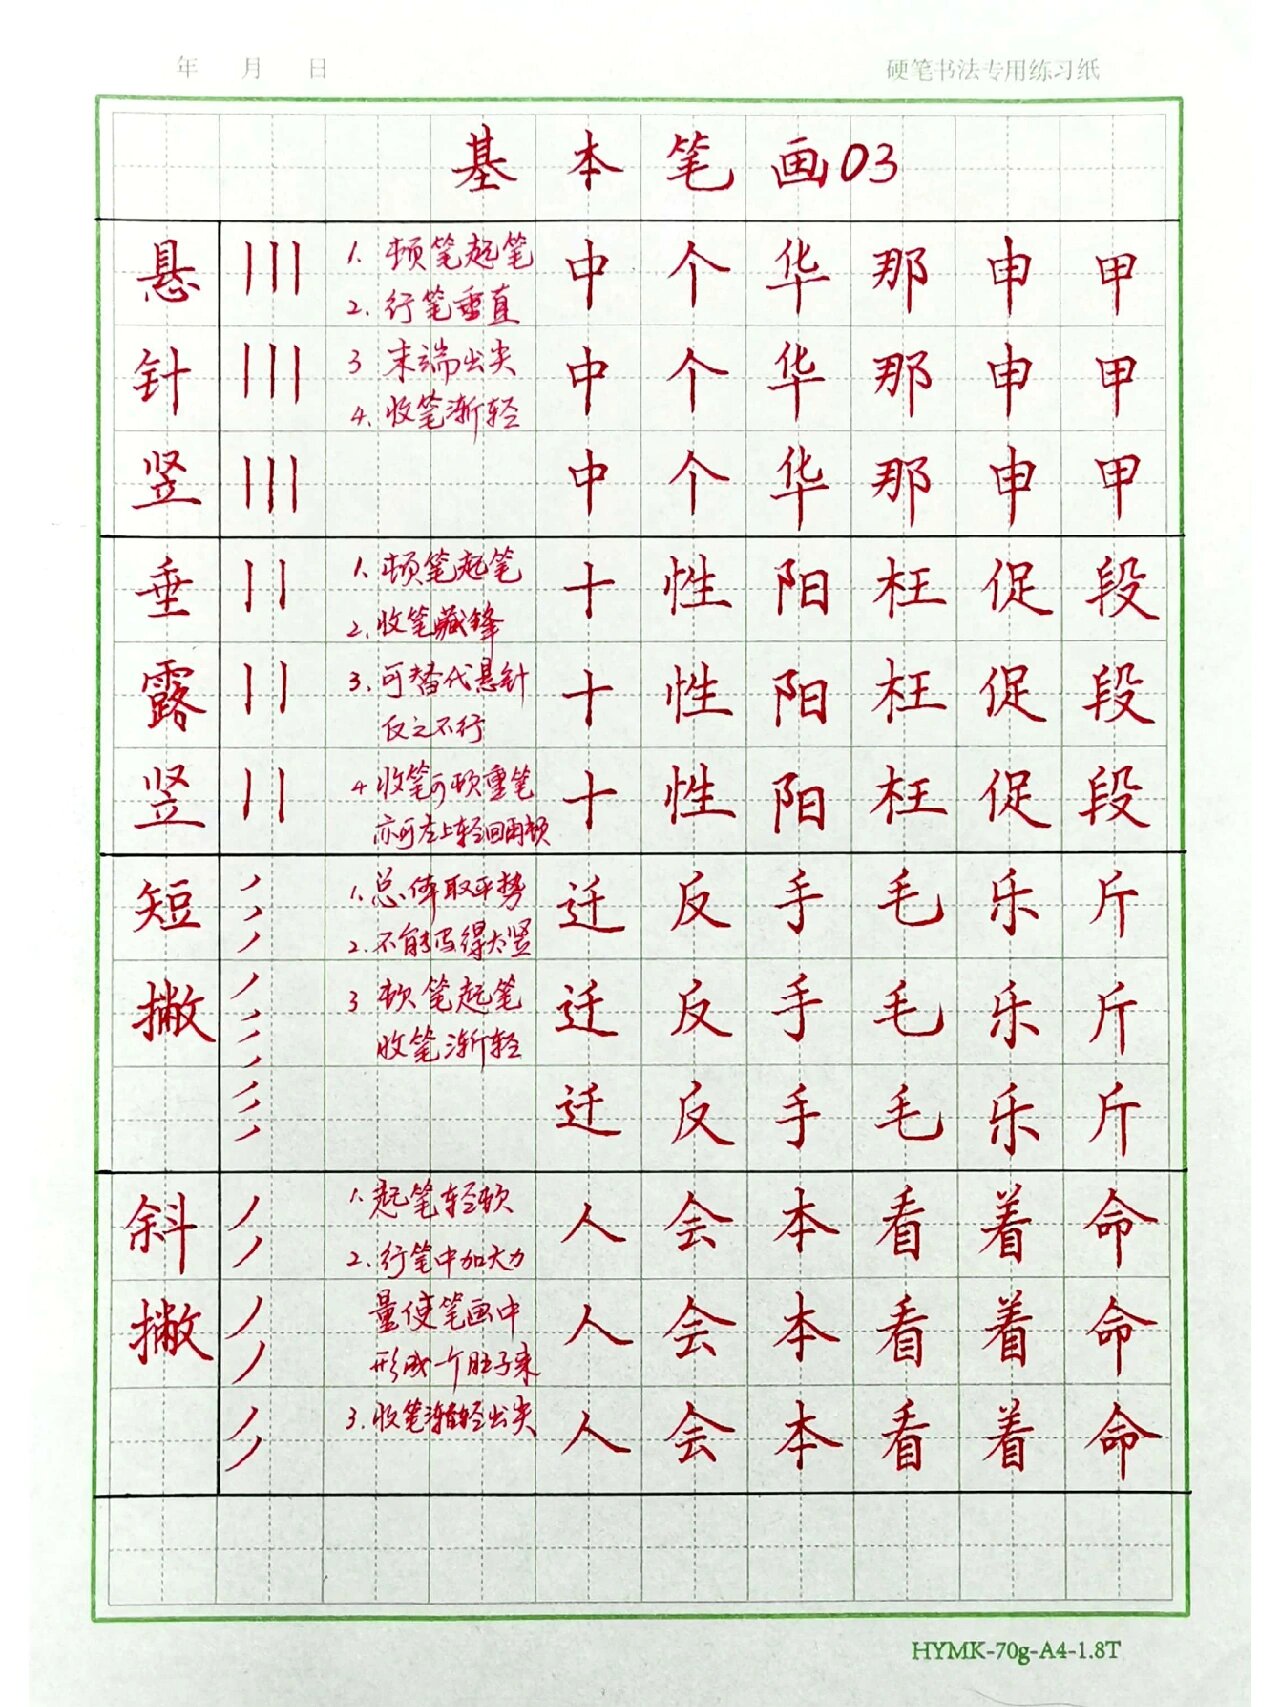 年 月 日 硬笔书法专用练习纸
基本笔画03
悬针竖
1. 顿笔起笔
2. 行笔垂直
3 末端出尖
4. 收笔渐轻
中个华那申甲
中个华那申甲
中个华那申甲
垂露竖
1. 顿笔起笔
2. 收笔藏锋
3. 可替代悬针
反之不行
4 收笔可顿重笔
亦可左上轻回再顿
十性阳枉促段
十性阳枉促段
十性阳枉促段
短撇
1. 总体取平势
2. 不能写得太竖
3 顿笔起笔
收笔渐轻
迁反手毛乐斤
迁反手毛乐斤
迁反手毛乐斤
斜撇
1. 起笔轻顿
2. 行笔中加大力
量使笔画中
形成一个肚子来
3. 收笔渐轻出尖
人会本看着命
人会本看着命
人会本看着命
HYMK-70g-A4-1.8T